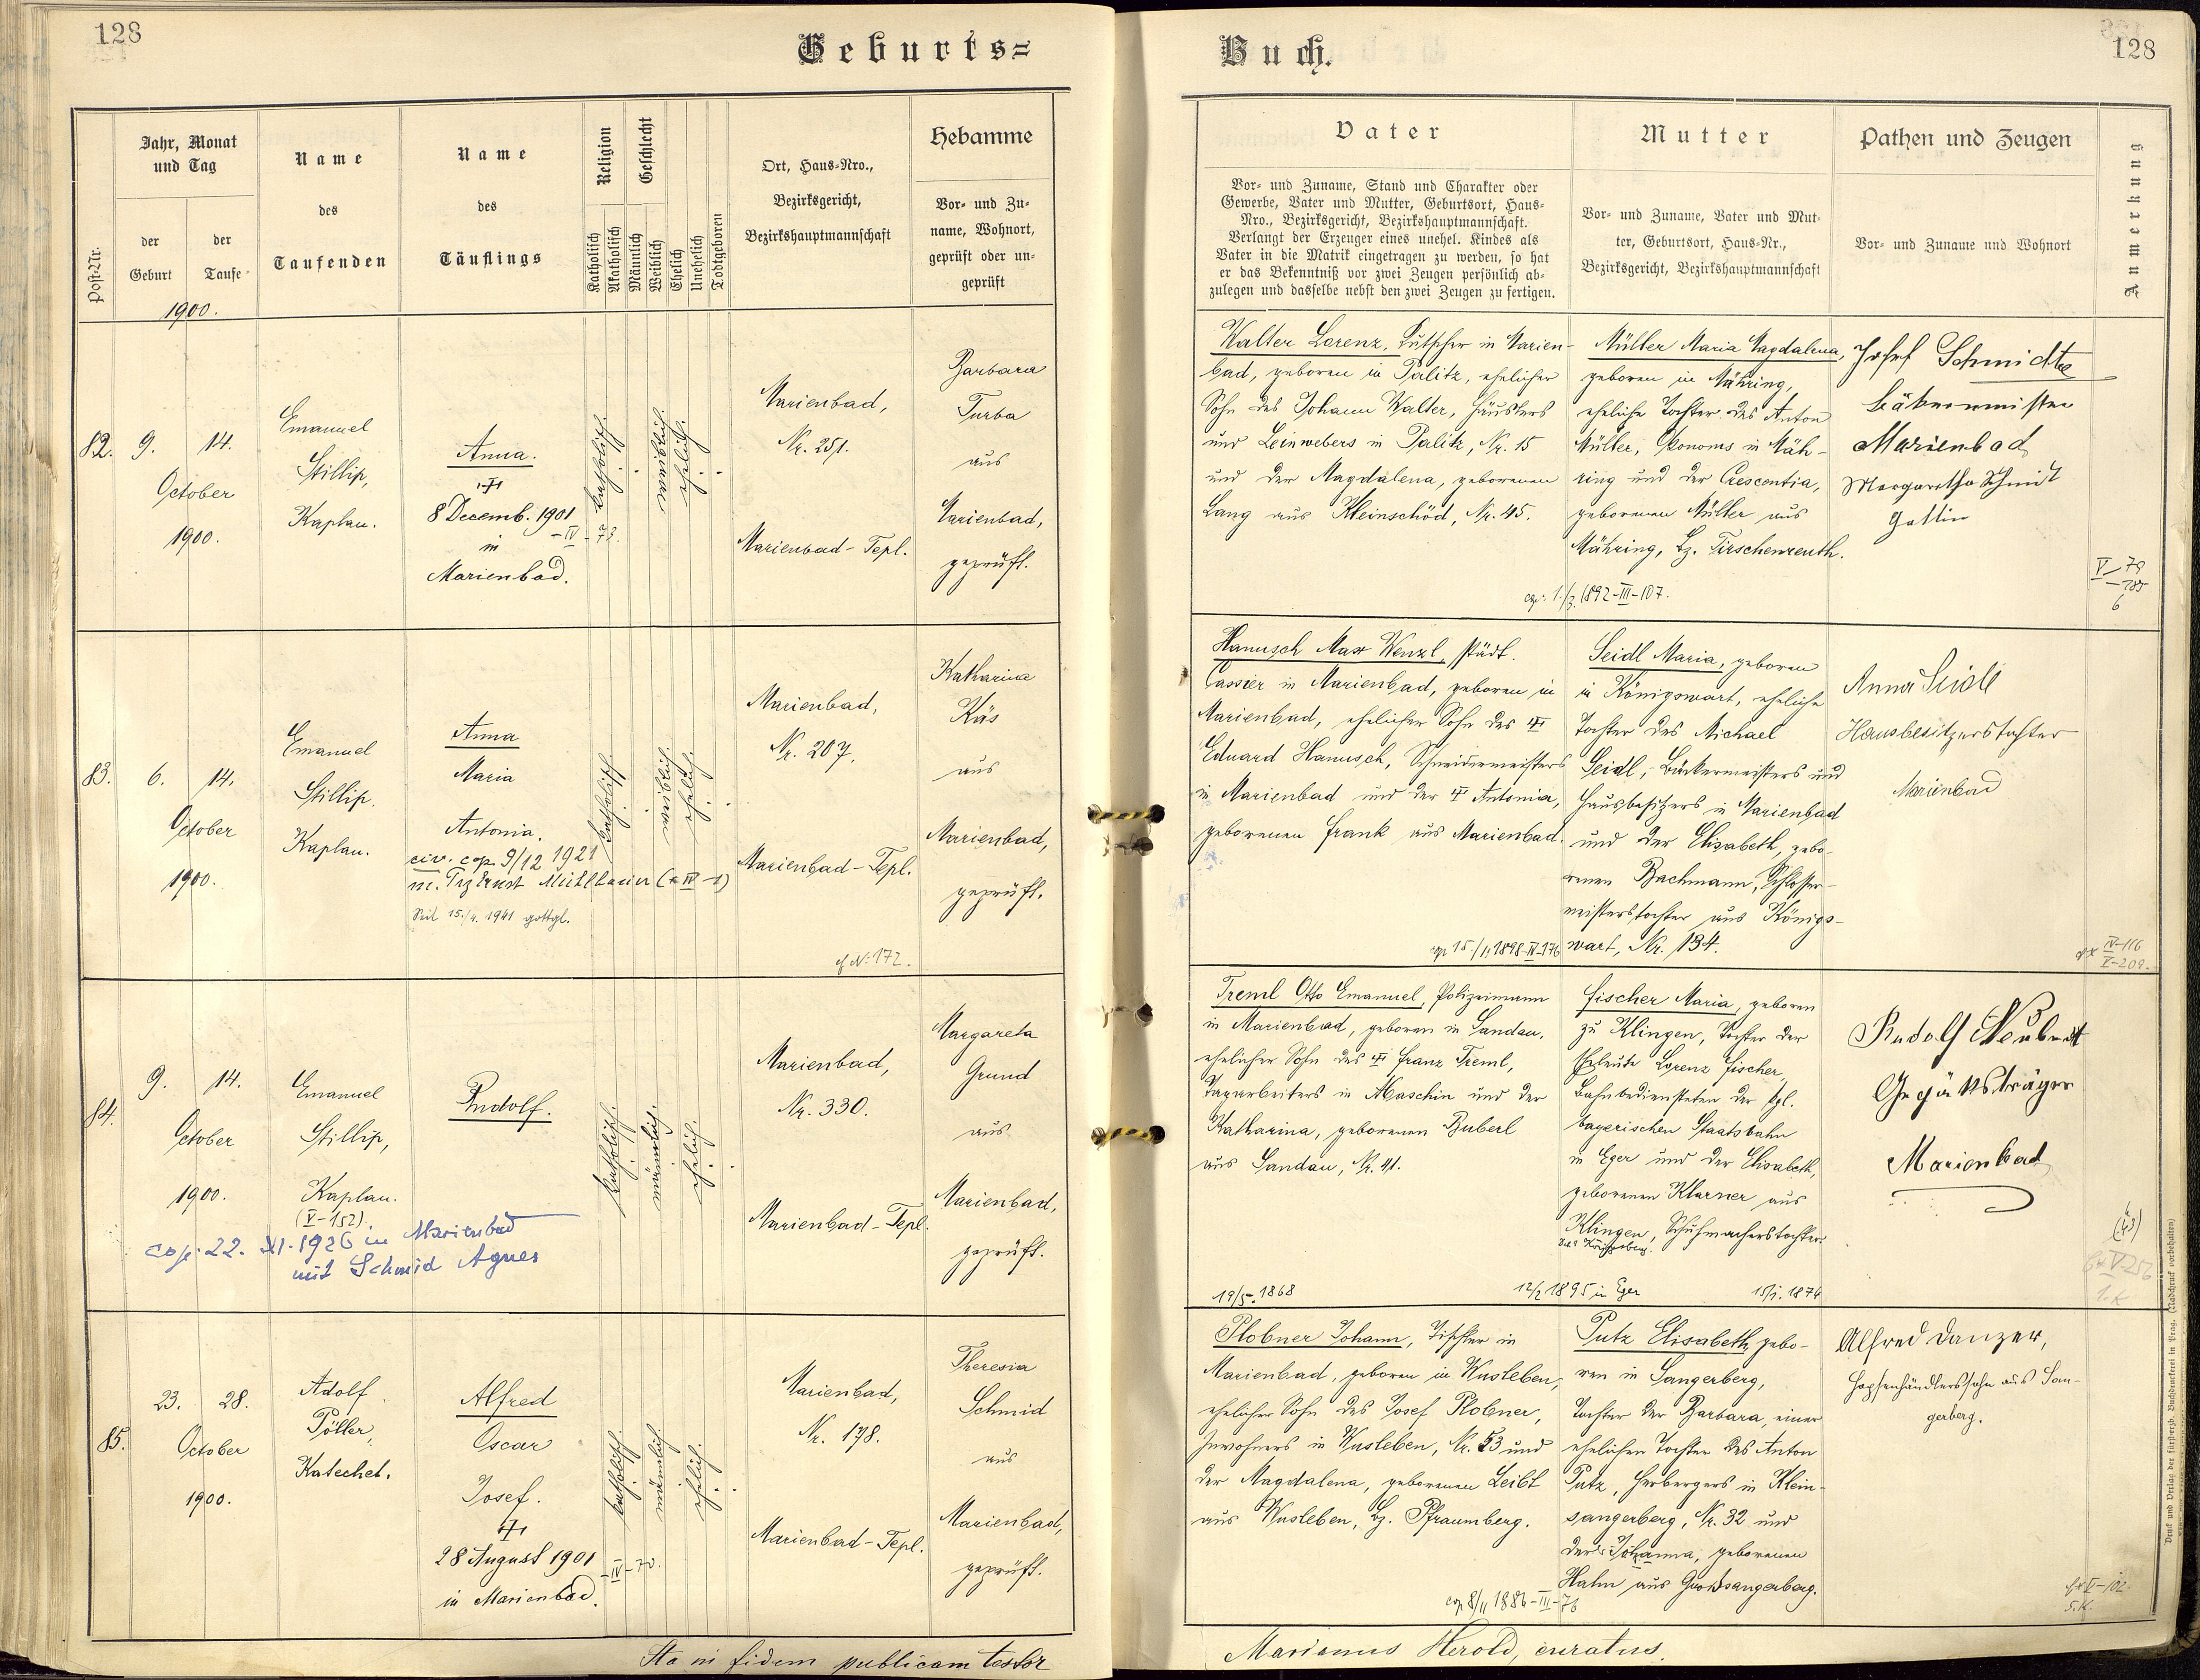 128
Geburts=
Jahr, Monat
und Tag
der
Geburt
der
Taufe
Post-Nr.
Name
des
Taufenden
Name
des
Täuflings
Religion
Geschlecht
Katholisch
Akatholisch
Männlich
Weiblich
Ehelich
Unehelich
Todtgeboren
Ort, Haus-Nro.,
Bezirksgericht,
Bezirkshauptmannschaft
Hebamme
Vor- und Zu-
name, Wohnort,
geprüft oder un-
geprüft
1900.
82.
9.
14.
October
1900.
Emanuel
Stillip,
Kaplan.
Anna.
8 Decemb. 1901
- IV - 73.
in
Marienbad.
katholisch.
weiblich.
ehelich.
Marienbad,
Nr. 251.
Marienbad-Tepl.
Barbara
Turba
aus
Marienbad,
geprüft.
83.
6.
14.
October
1900.
Emanuel
Stillip.
Kaplan.
Anna
Maria
Antonia.
civ. cop. 9/12 1921
Seit 15./4. 1941 gottgl.
katholisch
weiblich.
ehelich.
Marienbad,
Nr. 207.
Marienbad-Tepl.
Katharina
Käs
aus
Marienbad,
geprüft.
cf N: 172.
84.
9.
14.
October
1900.
Emanuel
Stillip,
Kaplan.
(V-152).
cop. 22. XI. 1926 in Marienbad
mit Schmid Agnes
Rudolf.
katholisch.
männlich.
ehelich.
Marienbad,
Nr. 330.
Marienbad-Tepl.
Margareta
Grund
aus
Marienbad,
geprüft.
85.
23.
28.
October
1900.
Adolf
Pöller,
Katechet.
Alfred
Oscar
Josef.
28 August 1901
- IV - 70.
in Marienbad.
katholisch.
männlich.
ehelich.
Marienbad,
Nr. 178.
Marienbad-Tepl.
Theresia
Schmid
aus
Marienbad,
geprüft.
Ita in fidem publicam testor
Buch.
128
Vater
Vor- und Zuname, Stand und Charakter oder
Gewerbe, Vater und Mutter, Geburtsort, Haus-
Nro., Bezirksgericht, Bezirkshauptmannschaft.
Verlangt der Erzeuger eines unehel. Kindes als
Vater in die Matrik eingetragen zu werden, so hat
er das Bekenntniß vor zwei Zeugen persönlich ab-
zulegen und dasselbe nebst den zwei Zeugen zu fertigen.
Mutter
Vor- und Zuname, Vater und Mut-
ter, Geburtsort, Haus-Nr.,
Bezirksgericht, Bezirkshauptmannschaft
Pathen und Zeugen
Vor- und Zuname und Wohnort
Anmerkung
Walter Lorenz, Kutscher in Marien-
bad, geboren in Palitz, ehelicher
Sohn des Johann Walter, Häuslers
und Leinwebers in Palitz, Nr. 15
und der Magdalena, geborenen
Lang aus Kleinschöd, Nr. 45.
Müller Maria Magdalena,
geboren in Mähring,
eheliche Tochter des Anton
Müller, Ökonoms in Mäh-
ring und der Crescentia,
geborenen Müller aus
Mähring, Bz. Tirschenreuth.
cop. 1./3. 1892-III-107.
Josef Schmidt
Bäkermeister
Marienbad
Margaretha Schmidt
Gattin
V/79
Hanusch Max Wenzl, städt.
Cassier in Marienbad, geboren in
Marienbad, ehelicher Sohn des
Eduard Hanusch, Schneidermeisters
in Marienbad und der Antonia,
geborenen Frank aus Marienbad.
Seidl Maria, geboren
in Königswart, eheliche
Tochter des Michael
Seidl, Bäckermeisters und
Hausbesitzers in Marienbad
und der Elisabeth, gebo-
renen Bachmann, Schlosser-
meisterstochter aus Königs-
wart, Nr. 134.
cop 15./11 1898-IV-176
Anna Seidl
Hausbesitzerstochter
Marienbad
IV-116
V-209.
Treml Otto Emanuel, Polizeimann
in Marienbad, geboren in Sandau,
ehelicher Sohn des Franz Treml,
Tagarbeiters in Maschin und der
Katharina, geborenen Buberl
aus Sandau, Nr. 41.
19/5. 1868
Fischer Maria, geboren
zu Klingen, Tochter der
Eheleute Lorenz Fischer,
Bahnbediensteten der kgl.
bayerischen Staatsbahn
in Eger und der Elisabeth,
geborenen Klarner aus
Klingen, Schuhmacherstochter.
12/2 1895 in Eger
15/1. 1874
Rudolf Neubert
Gepäksträger
Marienbad
V-256
1. K
Plobner Johann, Tischler in
Marienbad, geboren in Wusleben,
ehelicher Sohn des Josef Plobner,
Inwohners in Wusleben, Nr. 53 und
der Magdalena, geborenen Leibl
aus Wusleben, Bz. Pfraumberg.
Putz Elisabeth, gebo-
ren in Sangerberg,
Tochter der Barbara, einer
ehelichen Tochter des Anton
Putz, Herbergers in Klein-
sangerberg, Nr. 32 und
der Johanna, geborenen
Hahn aus Großsangerberg.
cop 8/11 1886-III-76
Alfred Danzer,
Hopfenhändlerssohn aus San-
gerberg.
V-102.
5. K.
Marianus Herold, curatus.
Druck und Verlag der fürsterzb. Buchdruckerei in Prag. (Nachdruck vorbehalten)